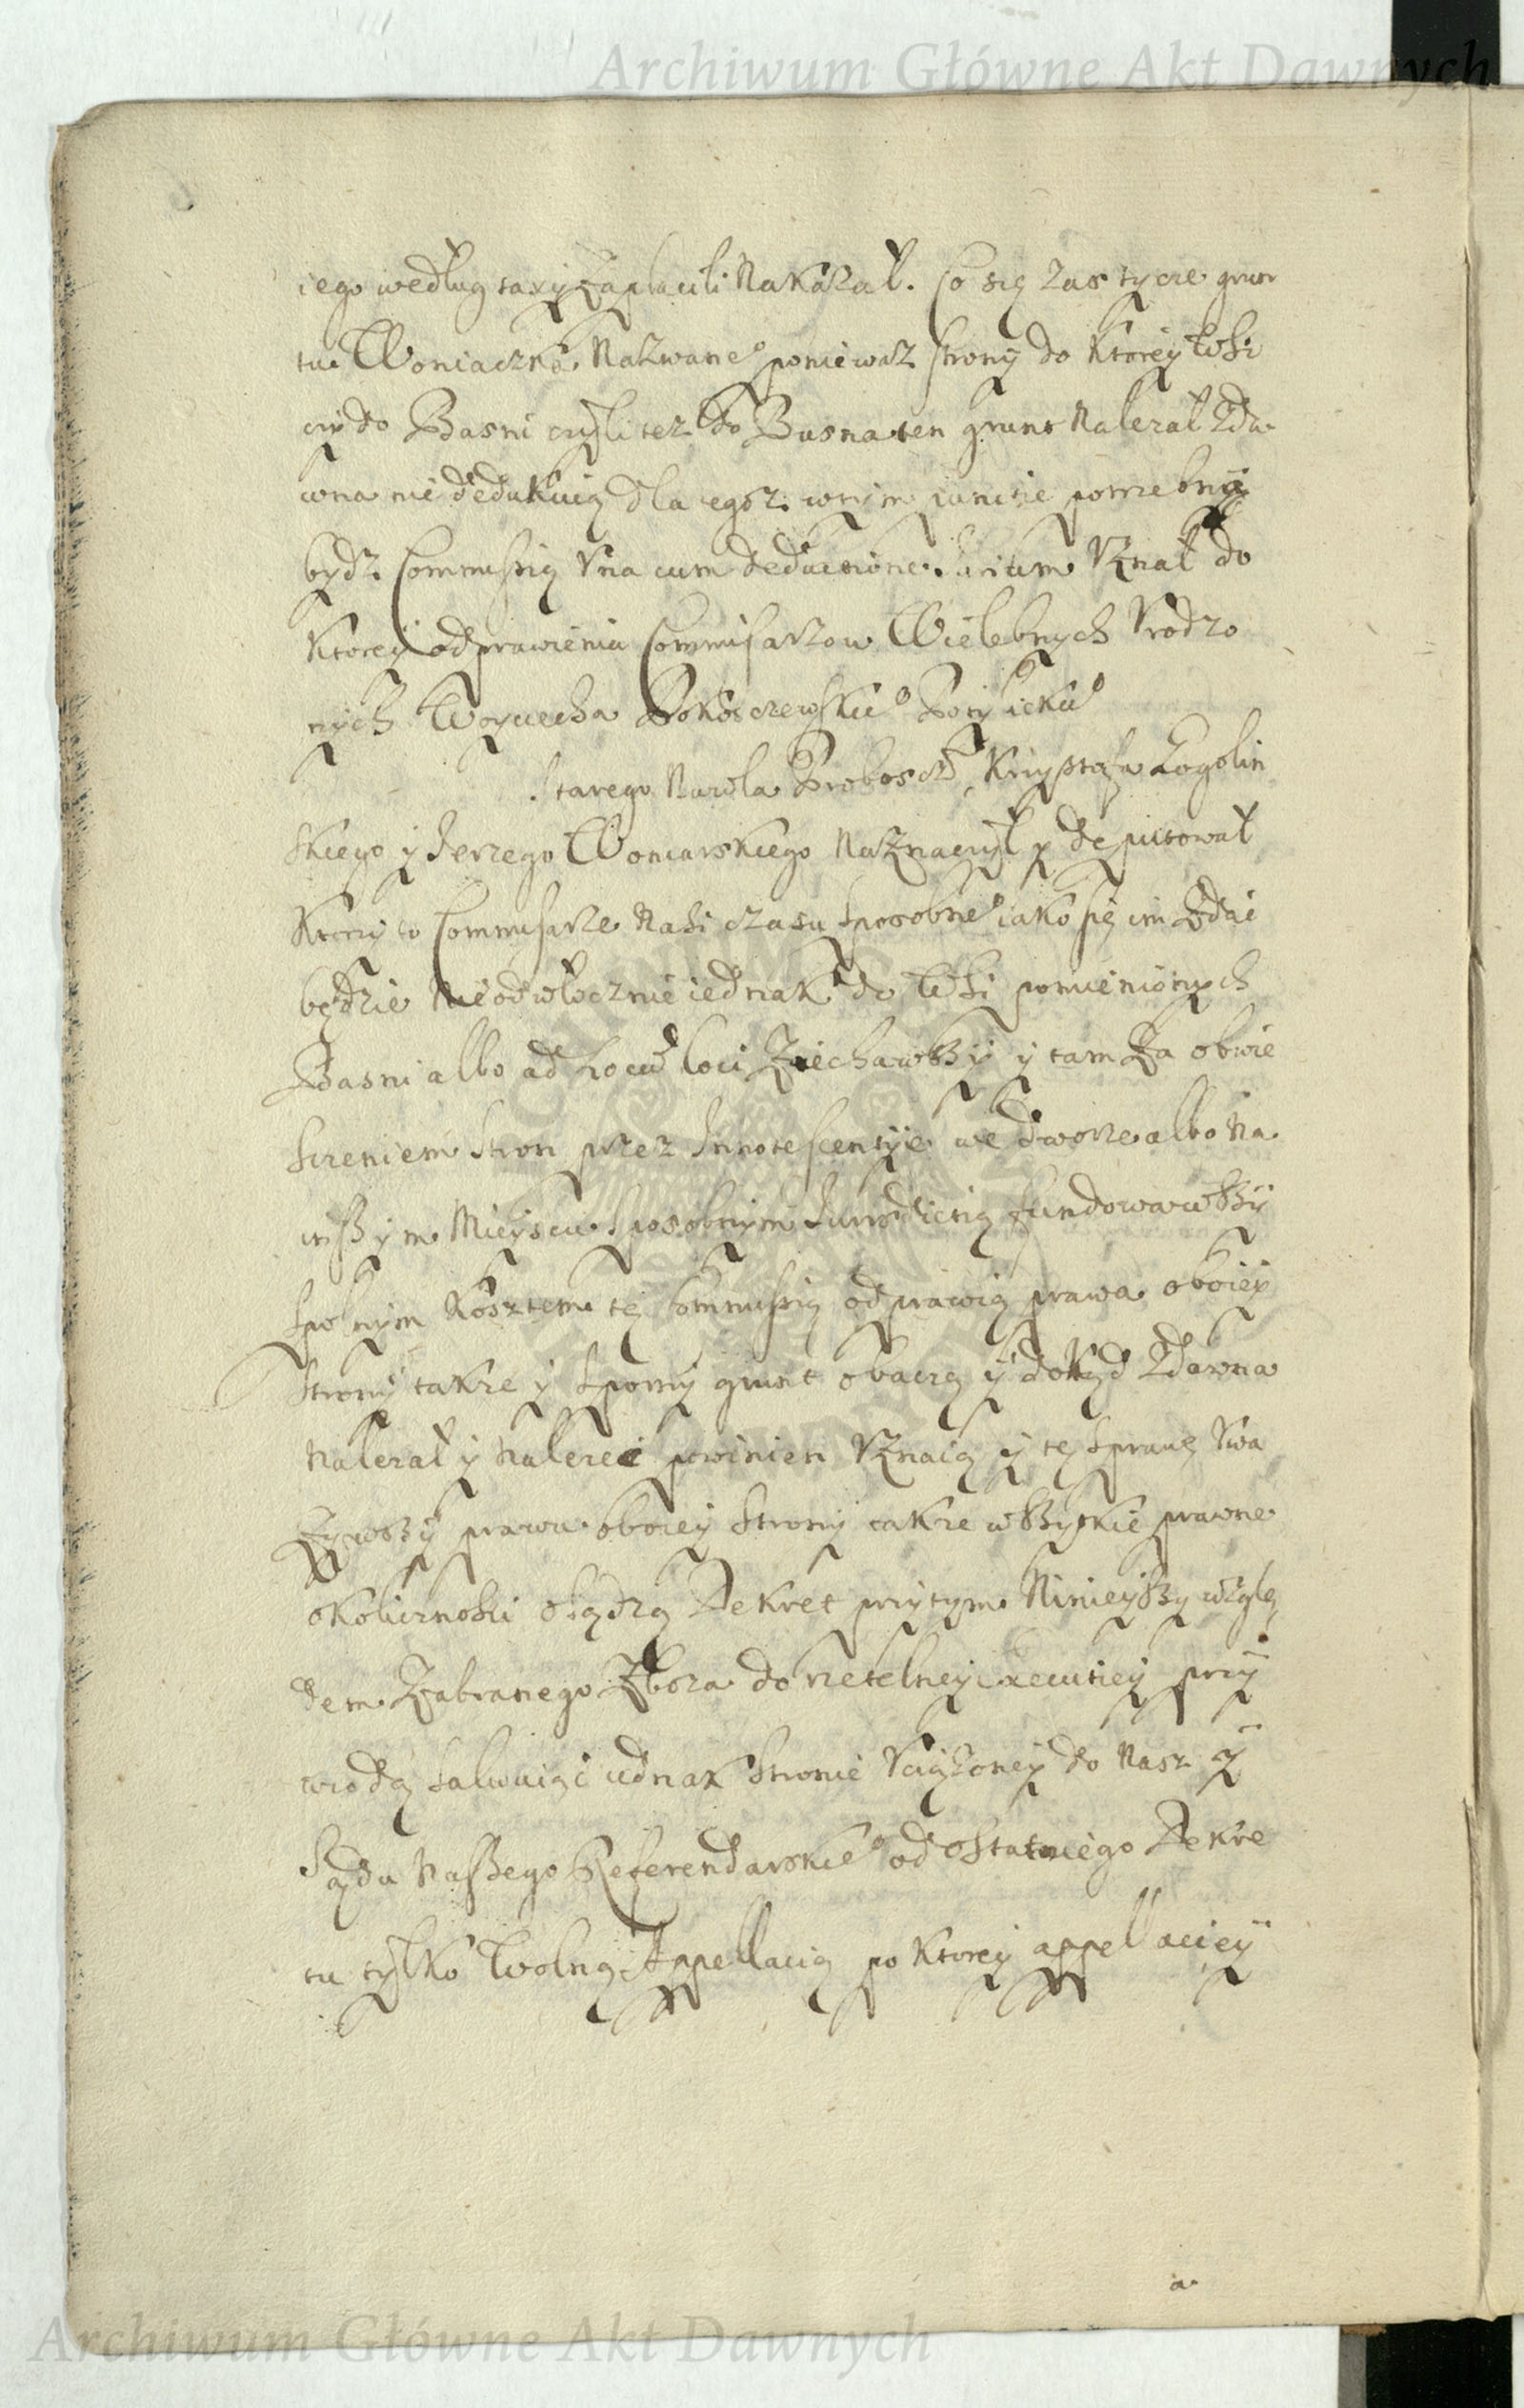 Archiwum Główne Akt Dawnych
iego według taxy zapłacili Nakazał. Co się zas tycze grun
tu Woniaczka Nazwane° poniewasz strony do Ktorey Wsi
czy do Basni czyli tez do Busna ten grunt Nalezał zda
wna nie dedukuią dla tegosz wnim
bydz Commissią Vna cum deductione Iurium Vznał do
Ktorey odprawienia Commissarzow Wielebnych Vrodzo
nych Woyciecha
Starego Narola Proboscza, Krzysztofa Rogolin
skiego y Jerzego Woniarskiego Naznaczył y deputował
Ktorzy to Commissarze Nasi czasu sposobne° iako się im zdac
będzie Nieodwłocznie iednak do Wsi pomienionych
Basni albo ad Locum loci Ziechawszy y tam za obwie
szczeniem stron przez Innotescentyie we dworze albo Na
inszym Mieyscu sposobnym Iurisdictią fundowawszy
spolnym Kosztem tę Commissią odprawią prawa oboiey
strony takze y sporny grunt obaczą y dokąd zdawna
Nalezał y Nalezec powinien Vznaią y tę sprawę Vwa
zywszy prawa oboiey strony takze wszyskie prawne
okolicznosci osądzą Dekret przytym Ninieyszy wzglę
dem Zabranego Zboza do rzetelney executiey przy
wiodą salwuiąc iednak stronie Vciązoney do Nasz y
Sądu Naszego Referendarskie° od ostatniego Dekre
tu tylko Wolną Appellacią po Ktorey appellaciey
a
Archiwum Główne Akt Dawnych